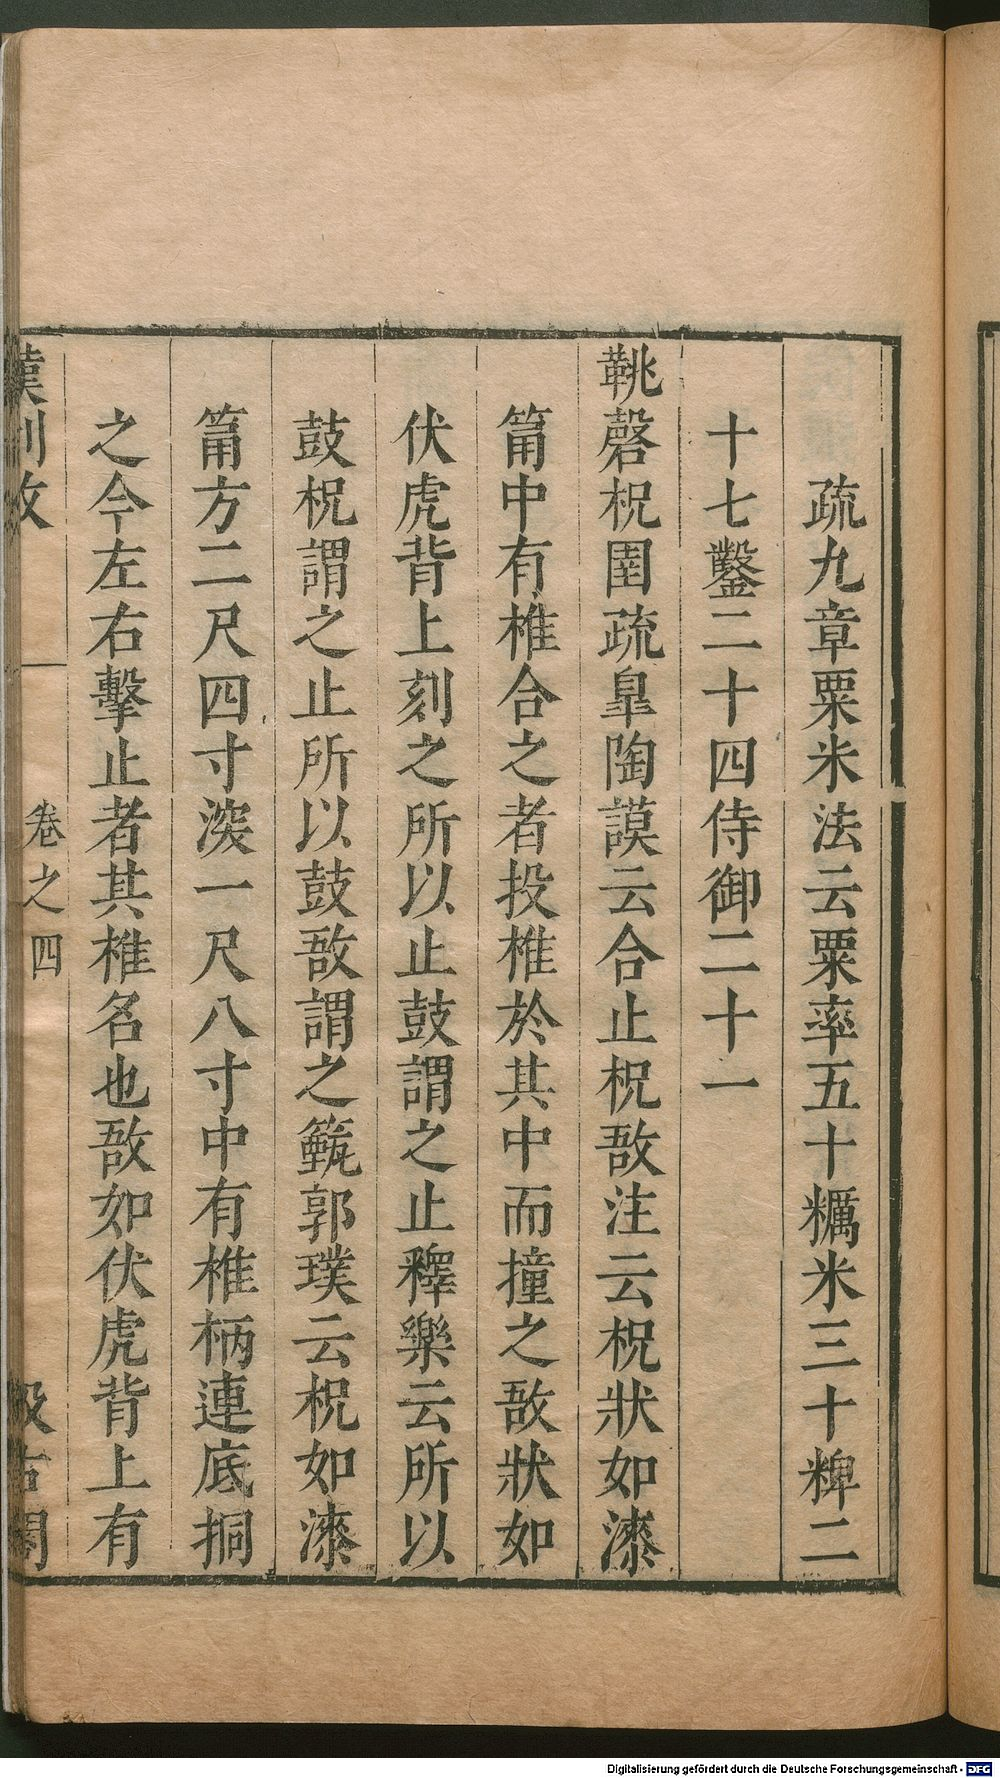 疏九章粟米法云粟率五十糲米三十粺二
十七鑿二十四侍御二十一
鞉磬柷圉疏臯陶謨云合止柷敔注云柷狀如漆
筩中有椎合之者投椎於其中而撞之敔狀如
伏虎背上刻之所以止鼓謂之止釋樂云所以
鼓柷謂之止所以鼓敔謂之籈郭璞云柷如漆
筩方二尺四寸深一尺八寸中有椎柄連底挏
之令左右擊止者其椎名也敔如伏虎背上有
卷之四
汲古閣
Digitalisierung gefördert durch die Deutsche Forschungsgemeinschaft - DFG